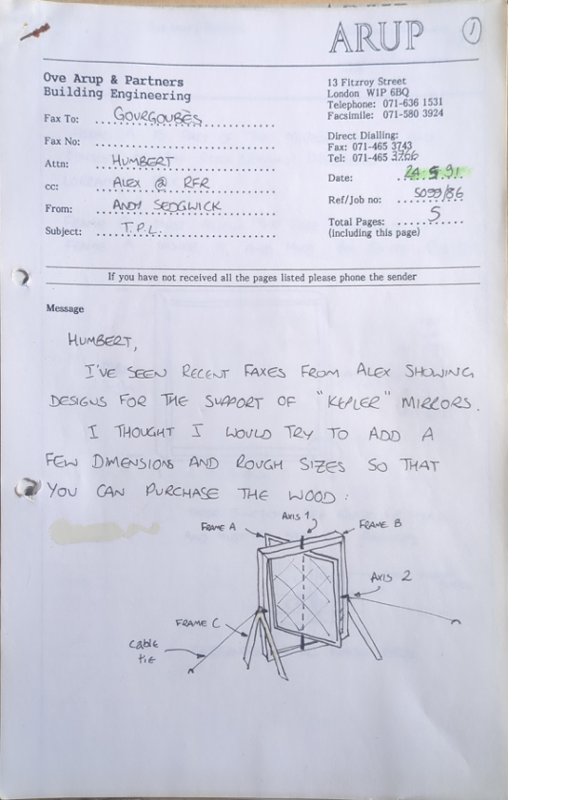 ARUP
1
Ove Arup & Partners
Building Engineering
13 Fitzroy Street
London W1P 6BQ
Telephone: 071-636 1531
Facsimile: 071-580 3924
Fax To: GOURGOUBÈS
Fax No:
Direct Dialling:
Fax: 071-465 3743
Tel: 071-465 3766
Attn: HUMBERT
Date: 24.5.91
cc: ALEX @ RFR
Ref/Job no: 5099/86
From: ANDY SEDGWICK
Total Pages: 5
(including this page)
Subject: T.P.L.
If you have not received all the pages listed please phone the sender
Message
HUMBERT,
I'VE SEEN RECENT FAXES FROM ALEX SHOWING
DESIGNS FOR THE SUPPORT OF "KEPLER" MIRRORS.
I THOUGHT I WOULD TRY TO ADD A
FEW DIMENSIONS AND ROUGH SIZES SO THAT
YOU CAN PURCHASE THE WOOD:
AXIS 1
FRAME A
FRAME B
AXIS 2
FRAME C
CABLE
TIE